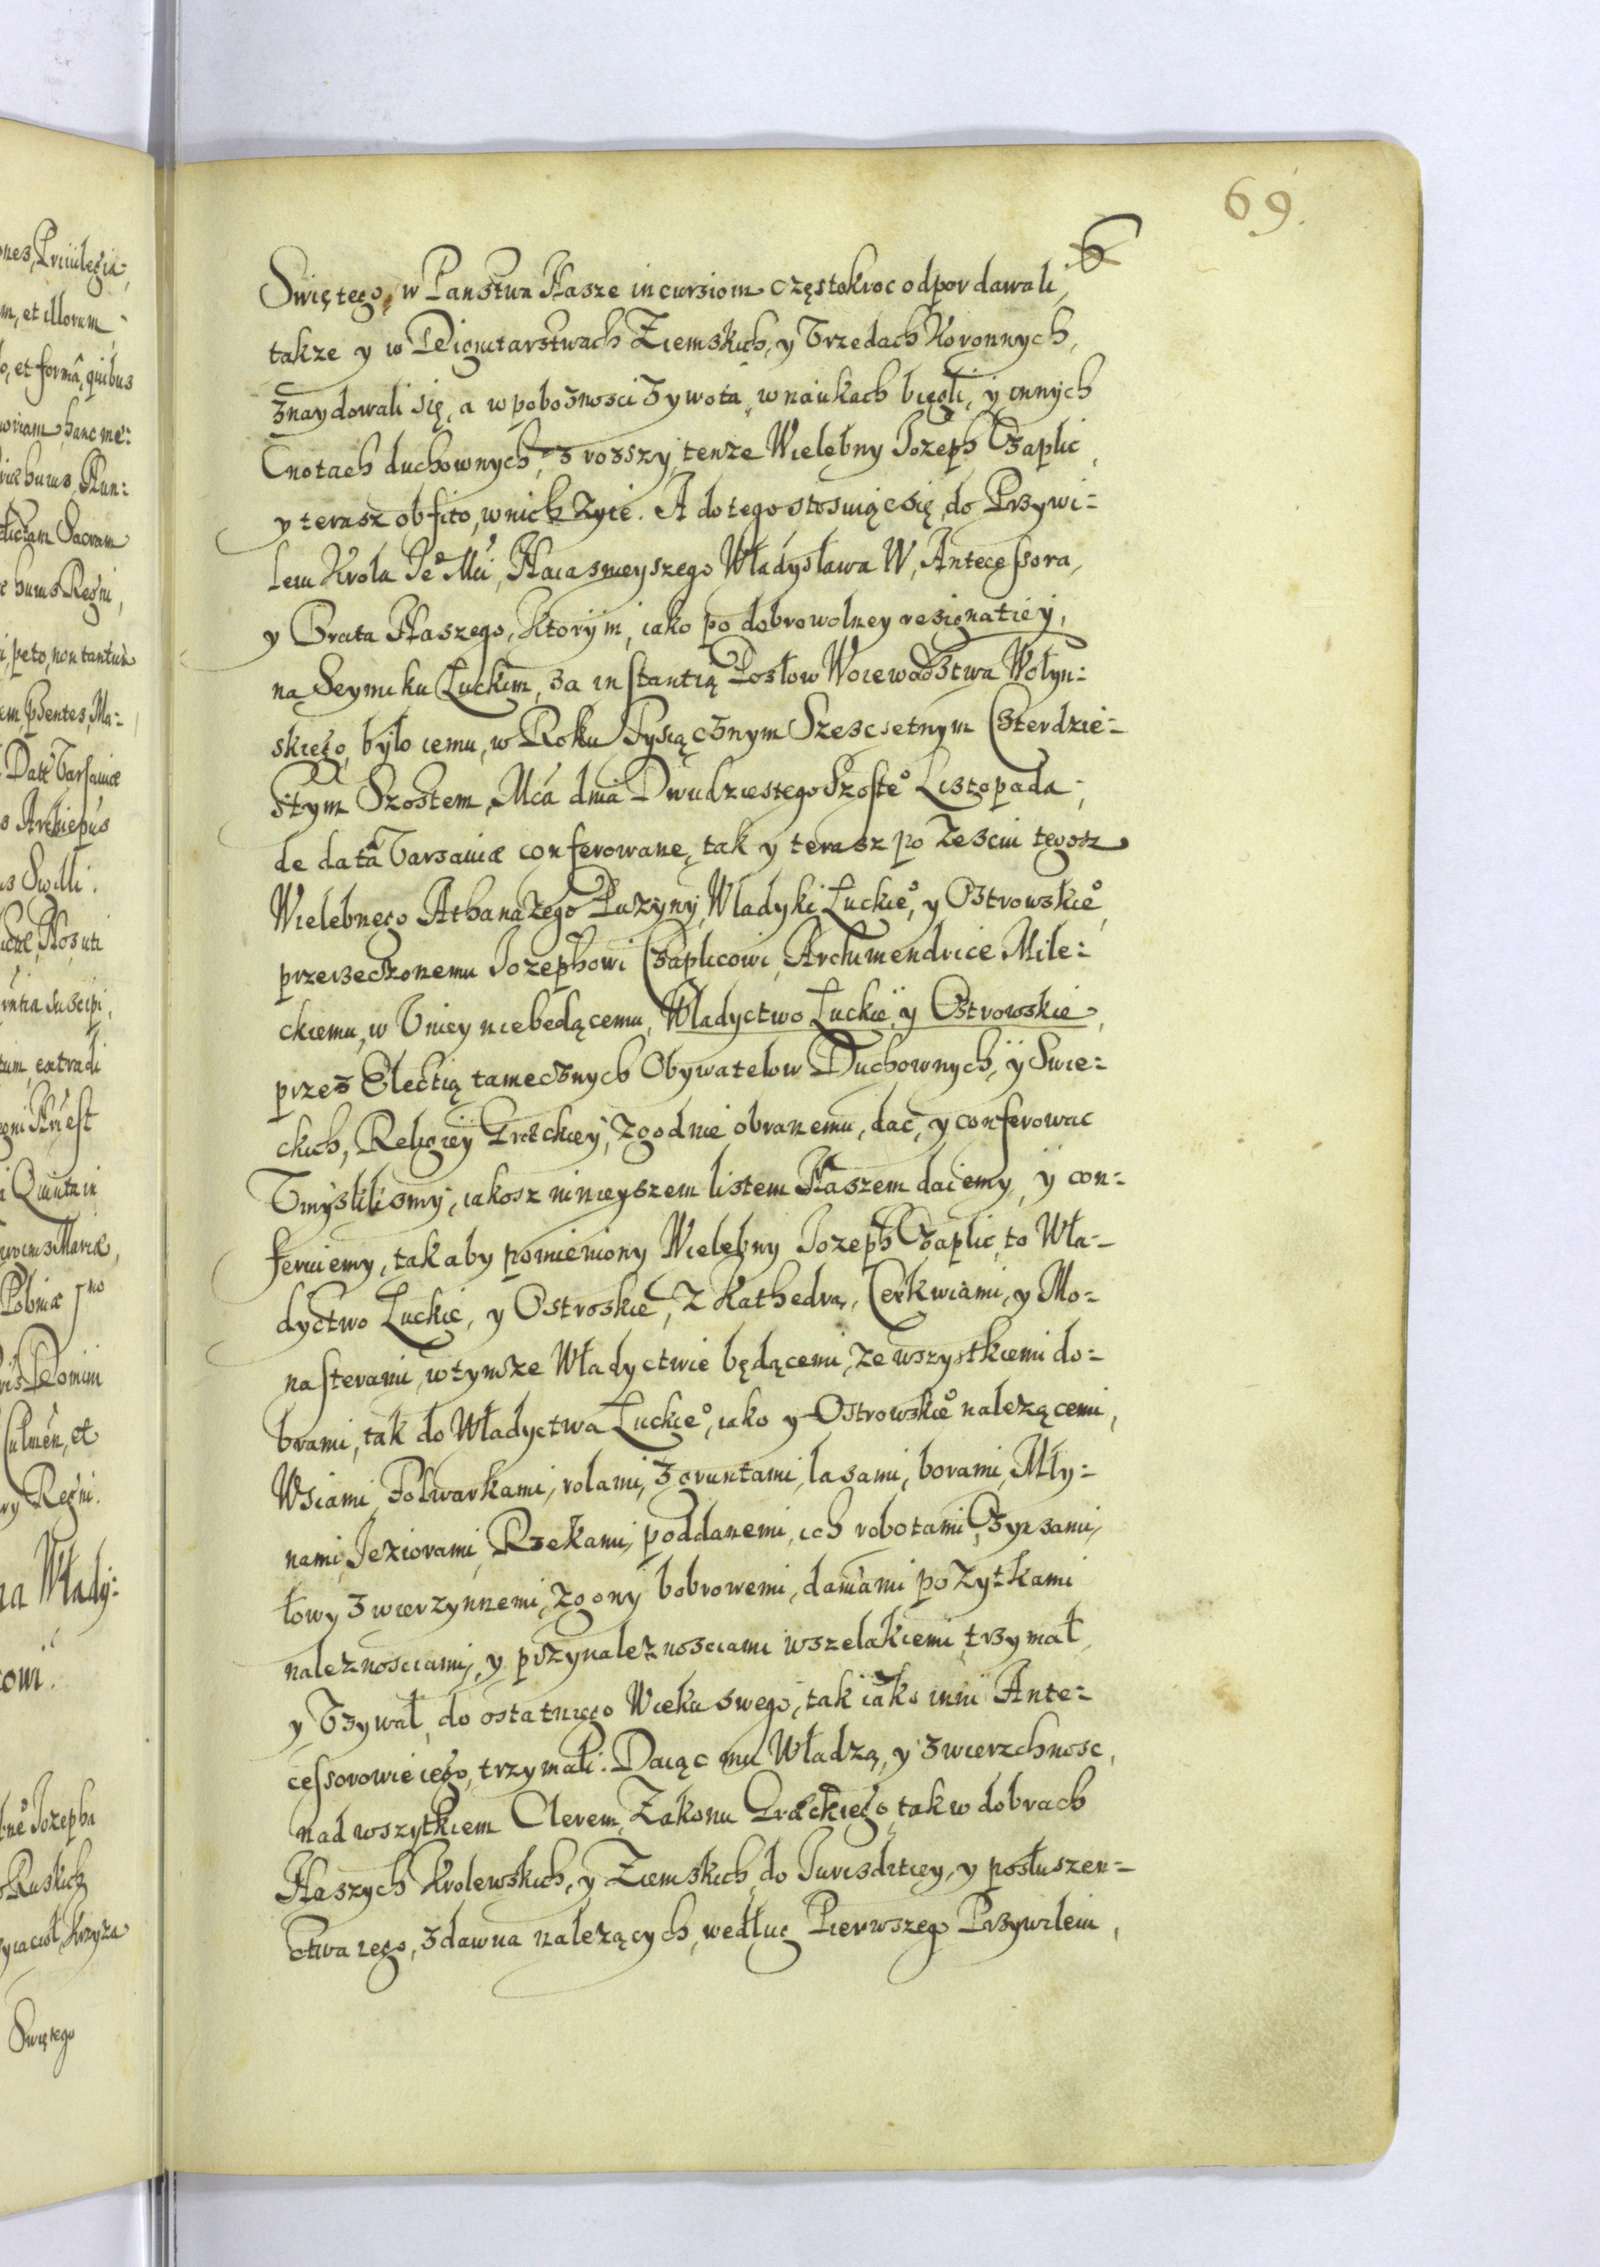 69.
6
Swiętego, w Panstwa Nasze incursiom częstokroc odpor dawali,
takze y w Dignitarstwach Ziemskich, y Vrzedach Koronnych,
znaydowali się, a w poboznosci zywota, w naukach biegli, y innych
Cnotach duchownych, z
tenze Wielebny Jozeph Czaplic
y terasz obfito, w nich zyie. A do tego stosuiąc się, do Przywi-
leiu Krola Jeº Mći, Naiasnieyszego Władysława IV, Antecessora,
y Brata Naszego, ktorym, iako po dobrowolney resignatiey,
na Seymiku Łuckim, za instantią Posłow Woiewodstwa Wołyn-
skiego, było iemu, w Roku Tysiącznym Szescsetnym Czterdzie-
stym Szostem, Mća dnia Dwudziestego Szosteº Listopada,
de data Varsaviæ conferowane, tak y terasz po zesciu tegosz
Wielebnego Athanazego Puzyny, Władyki Łuckieº, y Ostrowskieº,
przerzeczonemu Jozephowi Czaplicowi, Archimendricie Mile-
ckiemu, w Vniey niebedącemu, Władyctwo Łuckie, y Ostrowskie,
przez Electią tamecznych Obywatelow Duchownych, y Swie-
ckich, Religiey Græckiey, zgodnie obranemu, dac, y conferowac
Vmyslilismy, iakosz ninieyszem listem Naszem daiemy, y con-
feruiemy, tak aby pomieniony Wielebny Jozeph Czaplic, to Wła-
dyctwo Łuckie, y Ostroskie, z Kathedrą, Cerkwiami, y Mo-
nasterami, w tymze Władyctwie będącemi, ze wszystkiemi do-
brami, tak do Władyctwa Łuckieº, iako y Ostrowskieº nalezącemi,
Wsiami, Folwarkami, rolami, z gruntami, lasami, borami, Mły-
nami, Jeziorami, Rzekami, poddanemi, ich robotami, Czynszami,
łowy zwierzynnemi, zgony bobrowemi, daniami pozytkami
naleznosciami, y przynaleznosciami wszelakiemi, trzymał,
y Vzywał, do ostatniego Wieku swego, tak iako inni Ante-
cessorowie iego, trzymali. Daiąc mu Władzą, y zwierzchnosc,
nad wszytkiem Clerem, Zakonu Græckiego, tak w dobrach
Naszych Krolewskich, y Ziemskich, do Jurisditiey, y posłuszen-
ctwa iego, zdawna nalezących, według Pierwszego Przywileiu,